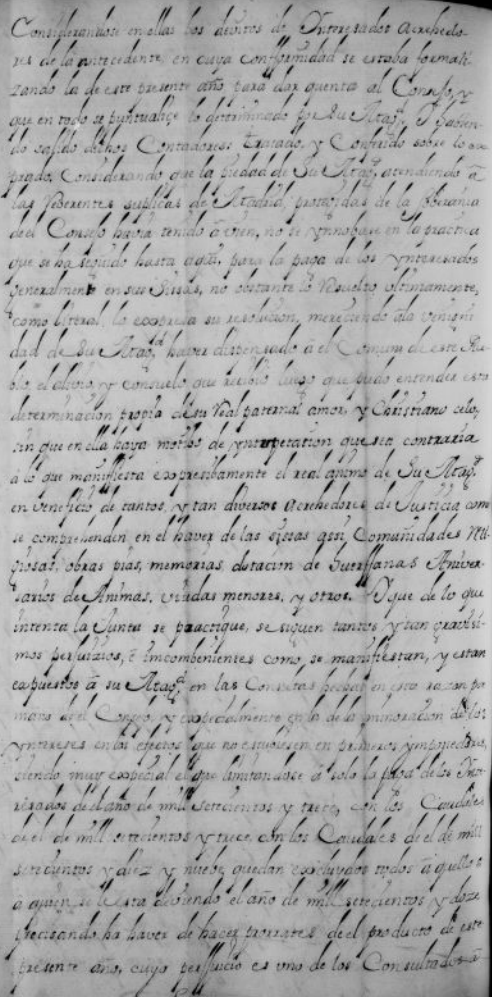 Considerandose en ellas los devitos de Ynteresados acrehedo-
res de la antecedente, en cuya confformidad se estaba formali-
zando la de este presente año, para dar quenta al Consejo, y
que en todo se puntualiçe lo determinado por Su Magᵈ. Y havien-
do salido dichos Contadores Tratado, y Conferido sobre lo ex-
presado, Considerando que la piedad de Su Magᵈ. atendiendo â
las Reberentes suplicas de Madrid, protexidas de la soberania
de el Consejo havia tenido â vien, no se ynnobase en la practica
que se ha seguido hasta aqui, para la paga de los ynteresados
generalmente en sus Sisas, no obstante lo Resuelto ultimamente,
como literal lo expresa su resolucion, mereciendo âla venigni
dad de Su Magᵈ. haver dispensado â el Comun de este Pue-
blo, el alivio, y consuelo que recibio luego que pudo entender esta
determinacion propia de su Real paternal amor, y Christiano celo,
sin que en ella haya motibo de ynterpetation que sea contraria
â lo que manifiesta expresibamente el real animo de Su Magᵈ.
en veneficio de tantos, y tan diversos acrehedores de Justicia como
se comprehenden en el haver de las sisas assi, Comunidades Reli-
giosas, obras pias, memorias, dotacion de Huerffanas Aniver-
sarios de Animas, viudas menores, y otros. Y que de lo que
intenta la Junta se practique, se siguen tantos y tan gravisi-
mos perjuizios, e imcombenientes como se manifiestan, y estan
expuestos â su Magᵈ. en las Consultas hechas en esta razon por
mano de el Consejo, y expecialmente en la de la minoracion de los
yntereses en los efectos que no estuviesen en primeros ymponedores,
siendo muy expecial el que limitandose â solo la paga de los Ynte-
resados de el año de mill setecientos y trece, con los Caudales
de el de mill setecientos y trece, con los Caudales de el de mill
setecientos y diez y nuebe, quedan excluidos todos aquellos
a quien se le esta deviendo el año de mill setecientos y doze
precisando ha haver de hacer prorrates, de el producto de este
presente año, cuyo perjuicio es uno de los Consultados â